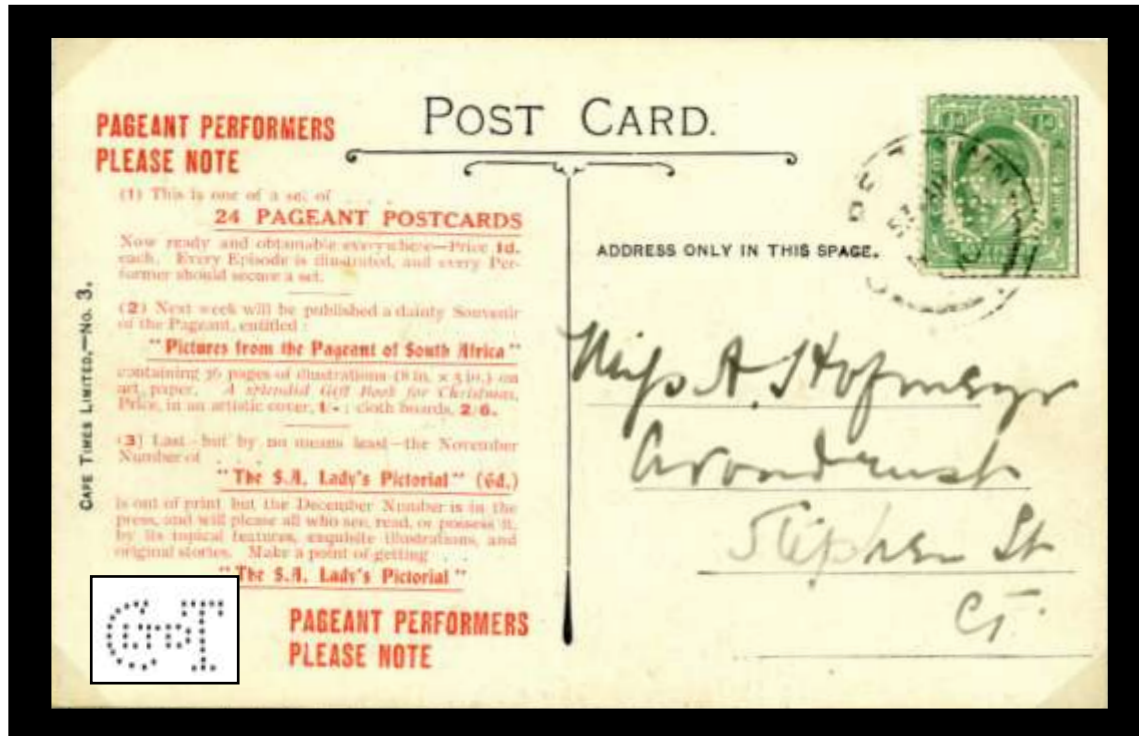 POST CARD.
PAGEANT PERFORMERS
PLEASE NOTE
(1) This is one of a set of . . . .
24 PAGEANT POSTCARDS
Now ready and obtainable everywhere—Price 1d.
each. Every Episode is illustrated, and every Per-
former should secure a set.
(2) Next week will be published a dainty Souvenir
of the Pageant, entitled :
"Pictures from the Pageant of South Africa"
containing 76 pages of illustrations (8 in. x 5 in.) on
art paper. A splendid Gift Book for Christmas,
Price, in an artistic cover, 1/- ; cloth boards, 2/6.
(3) Last—but by no means least—the November
Number of . . . .
"The S.A. Lady's Pictorial" (6d.)
is out of print but the December Number is in the
press, and will please all who see, read, or possess it,
by its topical features, exquisite illustrations, and
original stories. Make a point of getting . . .
"The S.A. Lady's Pictorial"
PAGEANT PERFORMERS
PLEASE NOTE
CAPE TIMES LIMITED.—No. 3.
ADDRESS ONLY IN THIS SPACE.
Miss A. Hofmeyr
Avondrust
Stephen St
CT.